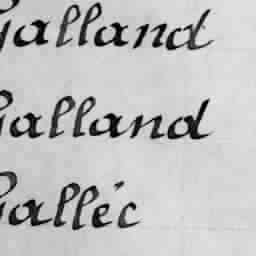 Galland
Galland
Galléc